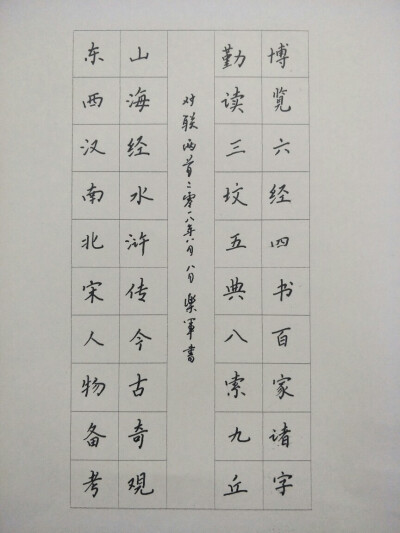 博览六经四书百家诸字
勤读三坟五典八索九丘
对联两首二零一八年八月八日樂軍書
山海经水浒传今古奇观
东西汉南北宋人物备考